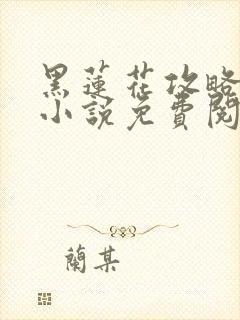 黑蓮花攻略
小說免費閱
蘭某